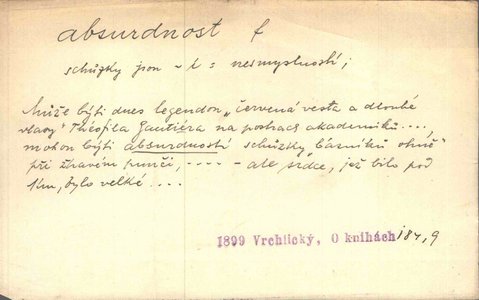 absurdnost f
schůzky jsou – l = nesmyslností;
Může býti dnes legendou „červená vesta a dlouhé
vlasy" Théofila Gautiéra na postrach akademiků....,
mohou býti absurdností schůzky básníků ohně
při žhavém punči, ---- - ale srdce, jež bilo pod
tím, bylo velké ....
1899 Vrchlický, O knihách 184,9